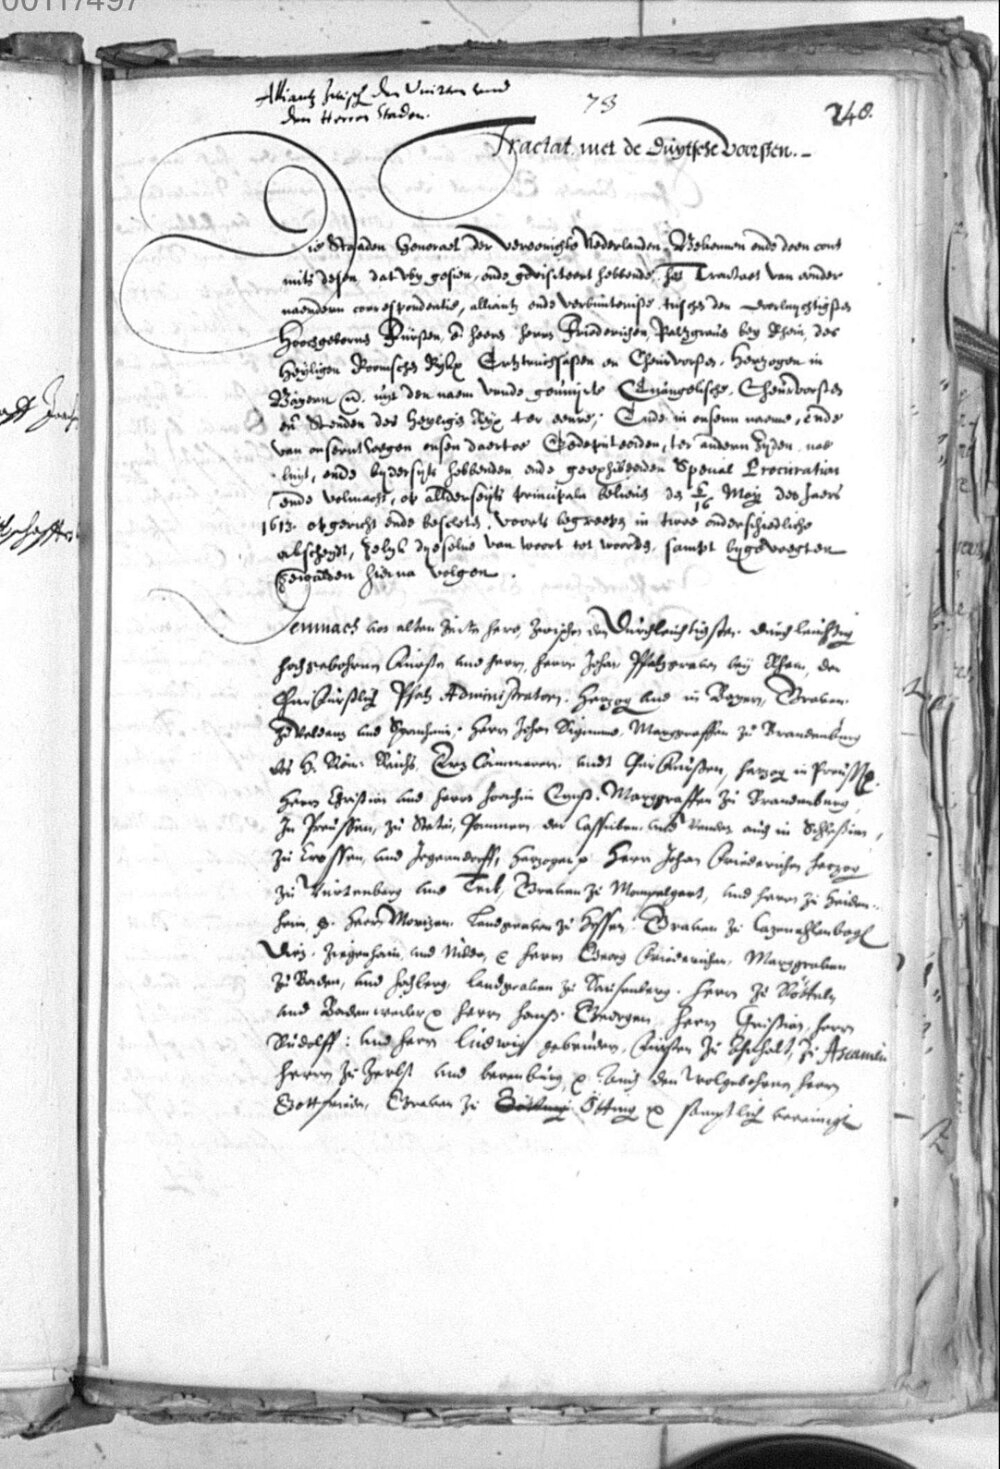 00117497
Alliantz zwisch den Unirten und
den Herren Staden.
78
248.
Tractat met de duytsche Voorsten.
Die Staaden Generael der vereenichde Nederlanden, Bekennen ende doen cont
mits desen, dat wy gesien, ende gevisiteert hebbende, het Tractaet van onder
naendern correspondentie, alliantz ende verbintenisse, tusschen den doorluchtigsten
Hoochgeboren Fursten, en heere herrn Friderichen, Paltzgraue bey Rhein, des
Heyligen Roomischen Rykx Ertztruchsassen en Cheurvorsten, Hertzogen in
Bayern &c. uyt den naem vande geunijrte Euangelische, Cheurvorsten
en Stenden des Heyligen Ryx ter eenre; Ende in onsen naeme, ende
van onsent wegen onsen daertoe Gedeputeerden, ter andern zyden, nae
luyt, ende bydersyts hebbenden ende geexhibeerden Special Procuration
ende volmacht, op allderseyts principalen believen des 6/16 May des Jaers
1613. opgericht ende besloten, voorts begreepen in twee onderschiedliche
abscheydt, welck dieselve van woort tot woorde, sampt bygevoegten
hierna volgen.
Demnach vor alten Zeiten hero, zwischen den Durchleuchtigsten, durchleuchtig
hochgebohrnen Fürsten und herrn, herrn Johan Pfaltzgraven bey Rhein, der
ChurFürstlich Pfaltz Administratorn, Hertzog und in Bayern, Graven
zu Veldentz und Spanheim, Herrn Johan Sigmund, Marggraffen zu Brandenburg
des H. Röm. Reichs, Ertz Cammerern undt ChurFürsten, hertzog in Preussen
Herrn Christian und herrn Joachim Ernst, Marggraffen zu Brandenburg,
In Preussen, zu Stetin, Pommern der Cassuben und Wenden auch in Schlesien,
zu Crossen, und Jegerndorff, hertzogen &c. Herrn Johan Friederichen hertzog
zu Würtenberg und Teck, Graven zu Mompelgart, und herrn zu Heiden-
heim, &c. herrn Moritzen Landgraven zu Hessen, Graven zu Catzenelenbogen
Dietz, Ziegenhain, und Nidda, &c. herrn Georg Friederichen, Marggraven
zu Baden, und hochberg, Landgraven zu Sausenberg, herrn zu Rötteln
und Badenweiler &c. herrn hanss Georgen, herrn Christian, herrn
Rudolff: und herrn Ludwig gebrüdern, Fürsten zu Anhalt, zu Ascanien
herrn zu Zerbst und berenburg, &c. Auch den Wolgebohrnen herrn
Gottfrieden, Graven zu Ötting &c. sämptlich vereinigt